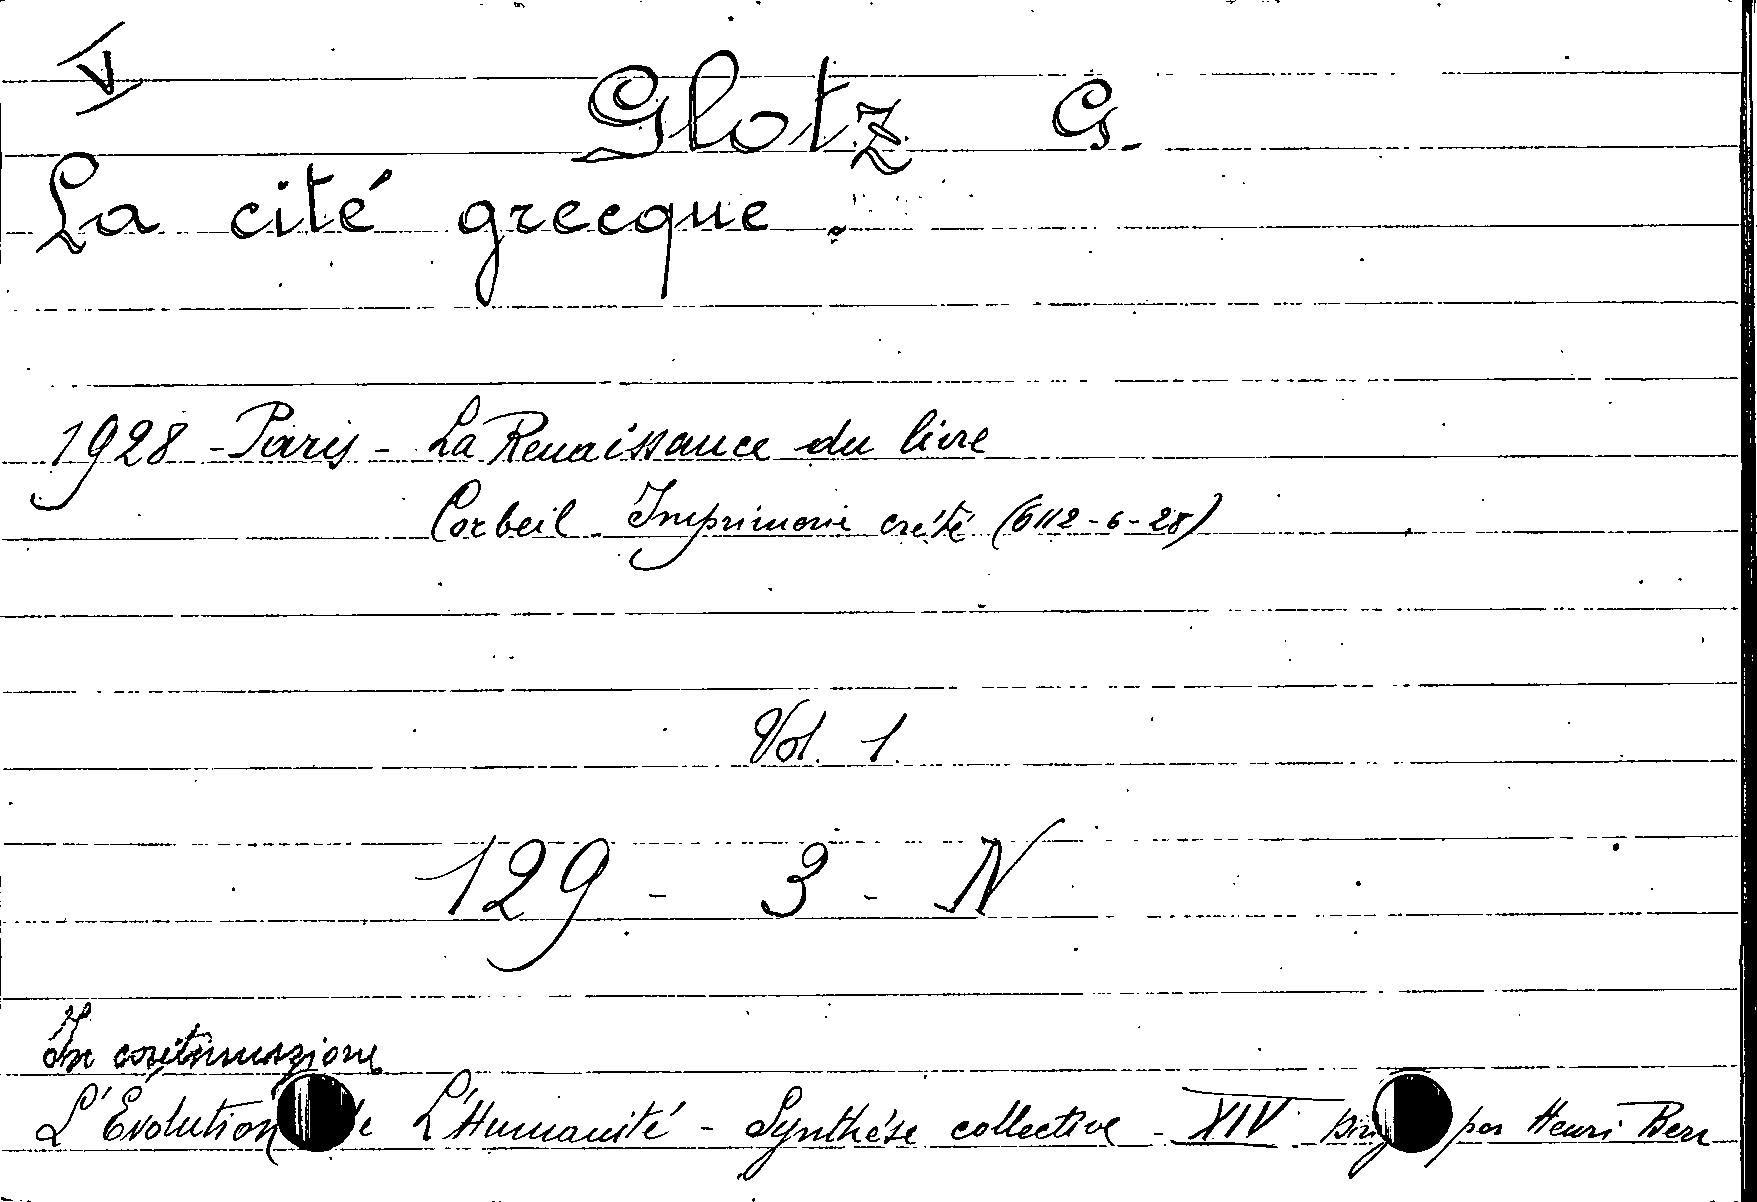 V
Glotz G.
La cité grecque.
1928 - Paris - La Renaissance du livre
Corbeil - Imprimerie crété (6112-6-28)
Vol. 1.
129 - 3 - N
In continuazione
L'Évolution de L'Humanité - Synthèse collective - XIV par Henri Berr